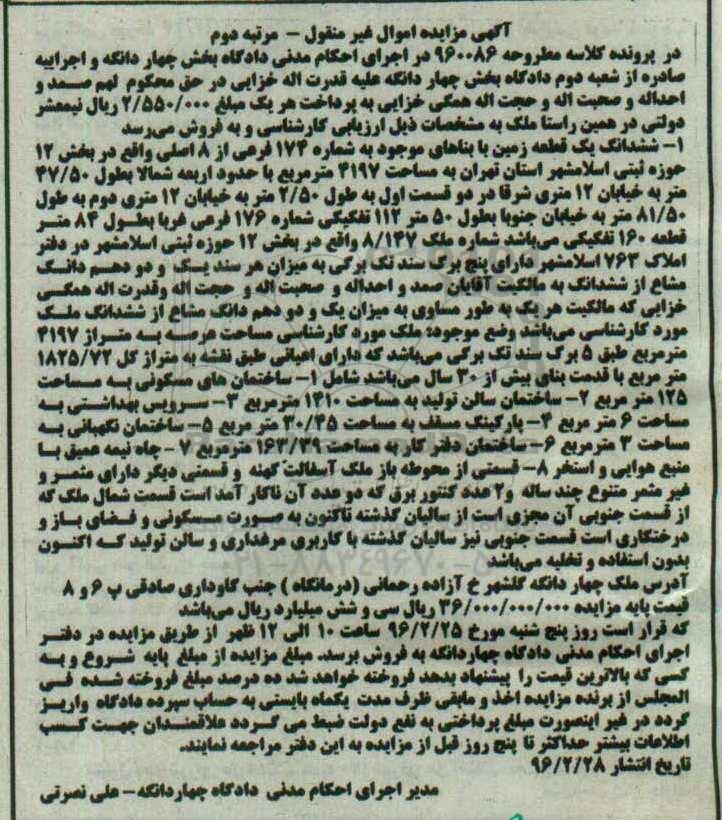 آگهی مزایده اموال غیر منقول - مرتبه دوم
در پرونده کلاسه مطروحه ۹۶۰۰۸۶ در اجرای احکام مدنی دادگاه بخش چهار دانگه و اجراییه
صادره از شعبه دوم دادگاه بخش چهار دانگه علیه قدرت اله خزایی در حق محکوم لهم صمد و
احداله و صحبت اله و حجت اله همگی خزایی به پرداخت هر یک مبلغ ۲/۵۵۰/۰۰۰ ریال نیمعشر
دولتی در همین راستا ملک به مشخصات ذیل ارزیابی کارشناسی و به فروش می‌رسد
۱- ششدانگ یک قطعه زمین با بناهای موجود به شماره ۱۷۴ فرعی از ۸ اصلی واقع در بخش ۱۲
حوزه ثبتی اسلامشهر استان تهران به مساحت ۴۱۹۷ مترمربع با حدود اربعه شمالا بطول ۴۷/۵۰
متر به خیابان ۱۲ متری شرقا در دو قسمت اول به طول ۲/۵۰ متر به خیابان ۱۲ متری دوم به طول
۸۱/۵۰ متر به خیابان جنوبا بطول ۵۰ متر ۱۱۲ تفکیکی شماره ۱۷۶ فرعی غربا بطول ۸۴ متر
قطعه ۱۶۰ تفکیکی می‌باشد شماره ملک ۸/۱۴۷ واقع در بخش ۱۲ حوزه ثبتی اسلامشهر در دفتر
املاک ۷۶۳ اسلامشهر دارای پنج برگ سند تک برگی به میزان هر سند یک و دو دهم دانگ
مشاع از ششدانگ به مالکیت آقایان صمد و احداله و صحبت اله و حجت اله وقدرت اله همگی
خزایی که مالکیت هر یک به طور مساوی به میزان یک و دو دهم دانگ مشاع از ششدانگ ملک
مورد کارشناسی می‌باشد وضع موجود: ملک مورد کارشناسی مساحت عرصه به متراژ ۴۱۹۷
مترمربع طبق ۵ برگ سند تک برگی می‌باشد که دارای اعیانی طبق نقشه به متراژ کل ۱۸۲۵/۷۲
متر مربع با قدمت بنای بیش از ۳۰ سال می‌باشد شامل ۱- ساختمان های مسکونی به مساحت
۱۲۵ متر مربع ۲- ساختمان سالن تولید به مساحت ۱۴۱۰ مترمربع ۳- سرویس بهداشتی به
مساحت ۶ متر مربع ۴- پارکینگ مسقف به مساحت ۳۰/۴۵ متر مربع ۵- ساختمان نگهبانی به
مساحت ۳ مترمربع ۶- ساختمان دفتر کار به مساحت ۱۶۳/۳۹ مترمربع ۷ - چاه نیمه عمیق با
منبع هوایی و استخر ۸- قسمتی از محوطه باز ملک آسفالت کهنه و قسمتی دیگر دارای مثمر و
غیر مثمر متنوع چند ساله و۲ عدد کنتور برق که دو عدد آن ناکار آمد است قسمت شمال ملک که
از قسمت جنوبی آن مجزی است از سالیان گذشته تاکنون به صورت مسکونی و فضای باز و
درختکاری است قسمت جنوبی نیز سالیان گذشته با کاربری مرغداری و سالن تولید که اکنون
بدون استفاده و تخلیه می‌باشد
آدرس ملک چهار دانگه گلشهر خ آزاده رحمانی (درمانگاه ) جنب گاوداری صادقی پ ۶ و ۸
قیمت پایه مزایده ۳۶/۰۰۰/۰۰۰/۰۰۰ ریال سی و شش میلیارد ریال می‌باشد
که قرار است روز پنج شنبه مورخ ۹۶/۲/۲۵ ساعت ۱۰ الی ۱۲ ظهر از طریق مزایده در دفتر
اجرای احکام مدنی دادگاه چهاردانگه به فروش برسد. مبلغ مزایده از مبلغ پایه شروع و به
کسی که بالاترین قیمت را پیشنهاد بدهد فروخته خواهد شد ده درصد مبلغ فروخته شده فی
المجلس از برنده مزایده اخذ و مابقی ظرف مدت یکماه بایستی به حساب سپرده دادگاه واریز
گردد در غیر اینصورت مبلغ پرداختی به نفع دولت ضبط می گردد علاقمندان جهت کسب
اطلاعات بیشتر حداکثر تا پنج روز قبل از مزایده به این دفتر مراجعه نمایند.
تاریخ انتشار ۹۶/۲/۲۸
مدیر اجرای احکام مدنی دادگاه چهاردانگه - علی نصرتی